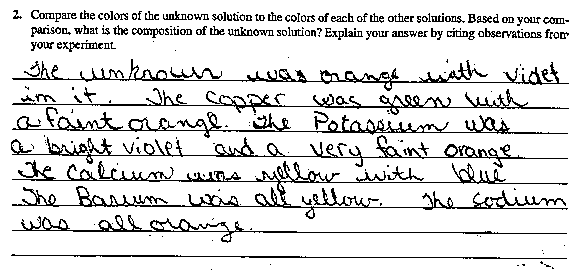 2. Compare the colors of the unknown solution to the colors of each of the other solutions. Based on your com-
parison, what is the composition of the unknown solution? Explain your answer by citing observations from
your experiment.
The unknown was orange with violet
in it. The copper was green with
a faint orange. The Potassium was
a bright violet and a very faint orange.
The Calcium was yellow with blue
The Barium was all yellow. The sodium
was all orange.